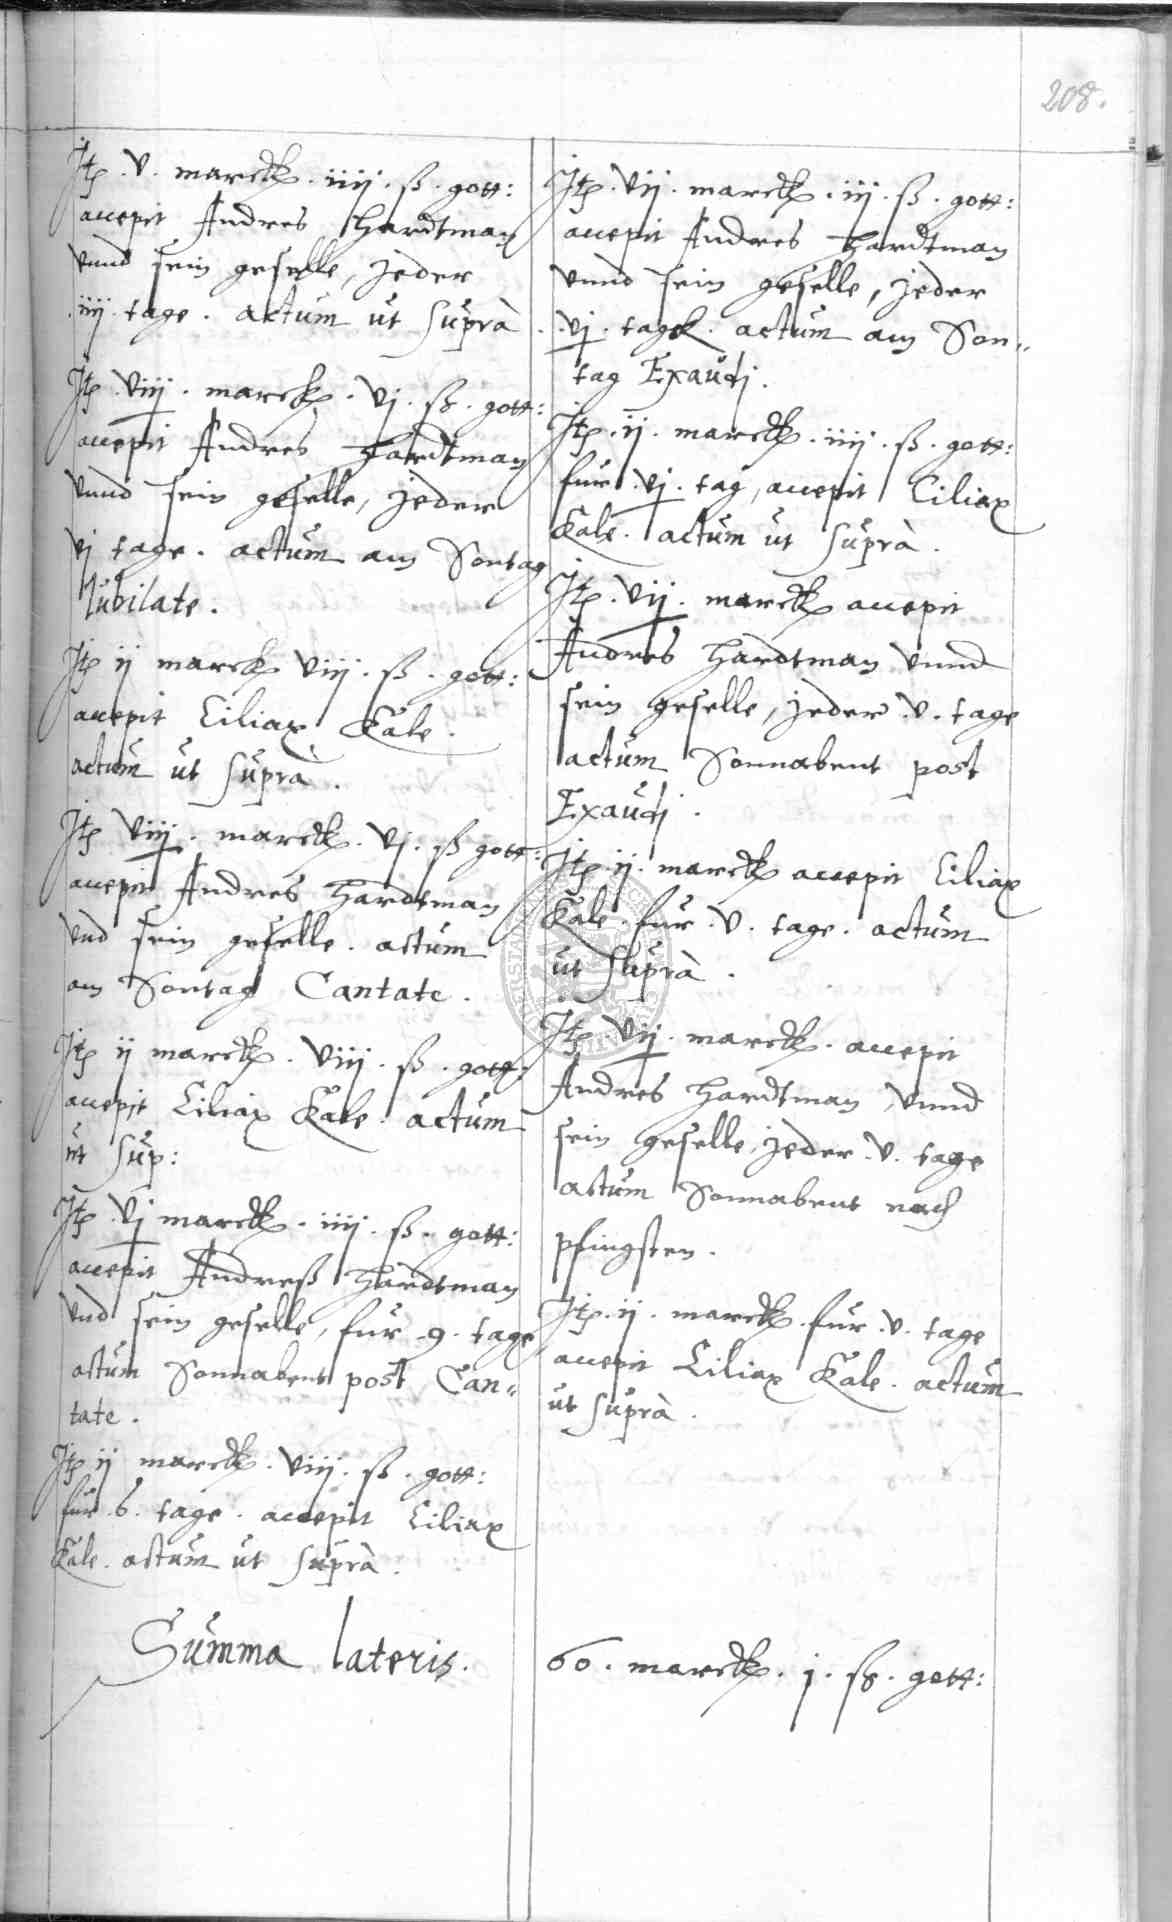 208.
Itē . v . marck . iiij . ß . gott:
accepit Andres Hardtman
vnnd sein geselle, jeder
.iiij. tage . actum ut suprà .
Itē viij . marck . vj . ß . gott:
accepit Andres Hardtman
vnnd sein geselle, jeder
vj tage . actum am Sontag
Iubilate .
Itē ij marck viij . ß . gott:
accepit Ciliax Kale .
actum ut suprà .
Itē viij . marck . vj . ß gott:
accepit Andres Hardtman
vnd sein geselle . actum
am Sontag Cantate .
Itē ij marck . viij . ß . gott:
accepit Ciliax Kale . actum
ut sup:
Itē vj marck . iiij . ß . gott:
accepit Andreß Hardtman
vnd sein geselle, fur .9. tage
actum Sonnabent post Can„
tate .
Itē ij marck . viij . ß . gott:
fur 6. tage . accepit Ciliax
Kale . actum ut suprà .
Itē . vij . marck . iij . ß . gott:
accepit Andres Hardtman
vnnd sein geselle, jeder
.vj. tage . actum am Son„
tag Exaudj .
Itē . ij . marck . iiij . ß . gott:
fur . vj . tag, accepit Ciliax
Kale . actum ut suprà .
Itē . vij . marck accepit
Andres Hardtman vnnd
sein geselle, jeder .v. tage
actum Sonnabent post
Exaudj .
Itē . ij . marck accepit Ciliax
Kale . fur .v. tage . actum
ut suprà .
Itē vij . marck . accepit
Andres Hardtman, vnnd
sein geselle, jeder .v. tage
actum Sonnabent nach
pfingsten .
Itē . ij . marck . fur .v. tage
accepit Ciliax Kale . actum
ut suprà .
Summa lateris . 60 . marck . j . ß . gott: